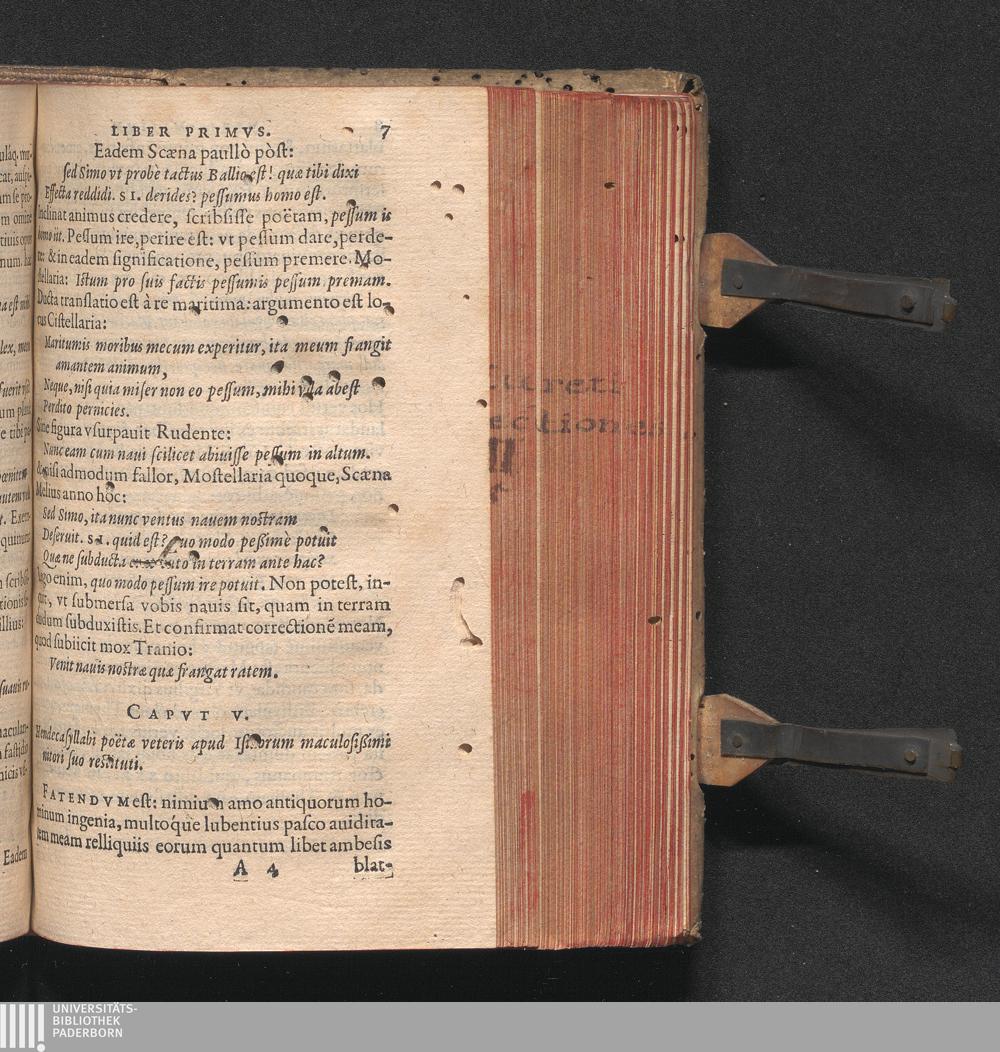 LIBER PRIMVS. 7
Eadem Scæna paullò pòst:
sed Simo vt probè tactus Ballio est! quæ tibi dixi
Effecta reddidi. SI. derides? pessumus homo est.
Inclinat animus credere, scribsisse poëtam, pessum is
homo it. Pessum ire, perire est: vt pessum dare, perde-
re: & in eadem significatione, pessum premere. Mo-
stellaria: Istum pro suis factis pessumis pessum premam.
Ducta translatio est à re maritima: argumento est lo-
cus Cistellaria:
Maritumis moribus mecum experitur, ita meum frangit
amantem animum,
Neque, nisi quia miser non eo pessum, mihi vlla abest
Perdito pernicies.
Sine figura vsurpauit Rudente:
Nunc eam cum naui scilicet abiuisse pessum in altum.
& nisi admodum fallor, Mostellaria quoque, Scæna
Melius anno hoc:
Sed Simo, ita nunc ventus nauem nostram
Deseruit. SI. quid est? quo modo peßimè potuit
Quæ ne subducta in terram ante hac?
Lego enim, quo modo pessum ire potuit. Non potest, in-
quit, vt submersa vobis nauis sit, quam in terram
dudum subduxistis. Et confirmat correctionē meam,
quod subiicit mox Tranio:
Venit nauis nostræ quæ frangat ratem.
CAPVT V.
Hendecasyllabi poëtæ veteris apud Isidorum maculosißimi
nitori suo restituti.
FATENDVM est: nimium amo antiquorum ho-
minum ingenia, multoq́ue lubentius pasco auidita-
tem meam relliquiis eorum quantum libet ambesis
A 4 blat-
Eadem
UNIVERSITÄTS-
BIBLIOTHEK
PADERBORN